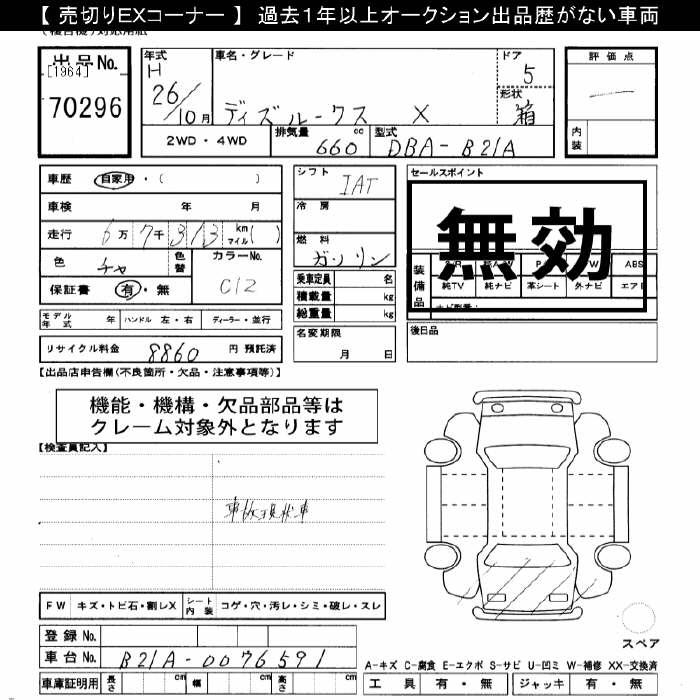 【 売切りEXコーナー 】 過去１年以上オークション出品歴がない車両
出品No.
[1964]
70296
年式
H
26/10月
車名・グレード
ディズルークス X
ドア
5
形状
箱
評価点
内装
2WD・4WD
排気量
660 cc
型式
DBA-B21A
車歴 自家用・( )
車検 年 月
走行 6万 7千 313 km マイル( )
色 チャ
色替
カラーNo.
C12
保証書 有・無
モデル年式 年 ハンドル 左・右 ディーラー・並行
リサイクル料金 8860 円 預託済
シフト
IAT
冷房
燃料
ガソリン
乗車定員 名
積載量 kg
総重量 kg
名変期限
月 日
セールスポイント
無効
装備品
ABS
純TV 純ナビ 革シート 外ナビ エアB
後日品
【出品店申告欄(不良箇所・欠品・注意事項等)】
機能・機構・欠品部品等は
クレーム対象外となります
【検査員記入】
事故現状車
FW キズ・トビ石・割レX
シート内装 コゲ・穴・汚レ・シミ・破レ・スレ
登録No.
車台No. B21A-0076591
車庫証明用 長さ cm 幅 cm 高さ cm
スペア
A-キズ C-腐食 E-エクボ S-サビ U-凹ミ W-補修 XX-交換済
工具 有・無 ジャッキ 有・無